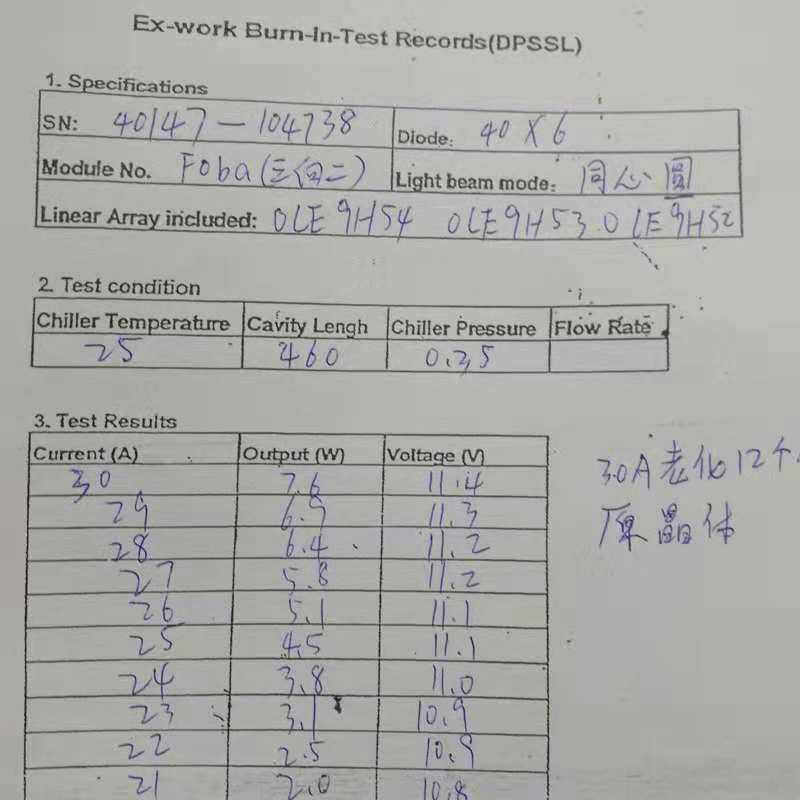 Ex-work Burn-In-Test Records(DPSSL)
1. Specifications
SN: 40147-104738 Diode: 40X6
Module No. Foba(三向二) Light beam mode: 同心圆
Linear Array included: OLE9H54 OLE9H53.OLE9H52
2. Test condition
Chiller Temperature Cavity Lengh Chiller Pressure Flow Rate
25 460 0.35
3. Test Results
Current (A) Output (W) Voltage (V)
30 7.6 11.4
29 6.9 11.3
28 6.4 11.2
27 5.8 11.2
26 5.1 11.1
25 4.5 11.1
24 3.8 11.0
23 3.1 10.9
22 2.5 10.9
21 2.0 10.8
30A老化12个
原晶体